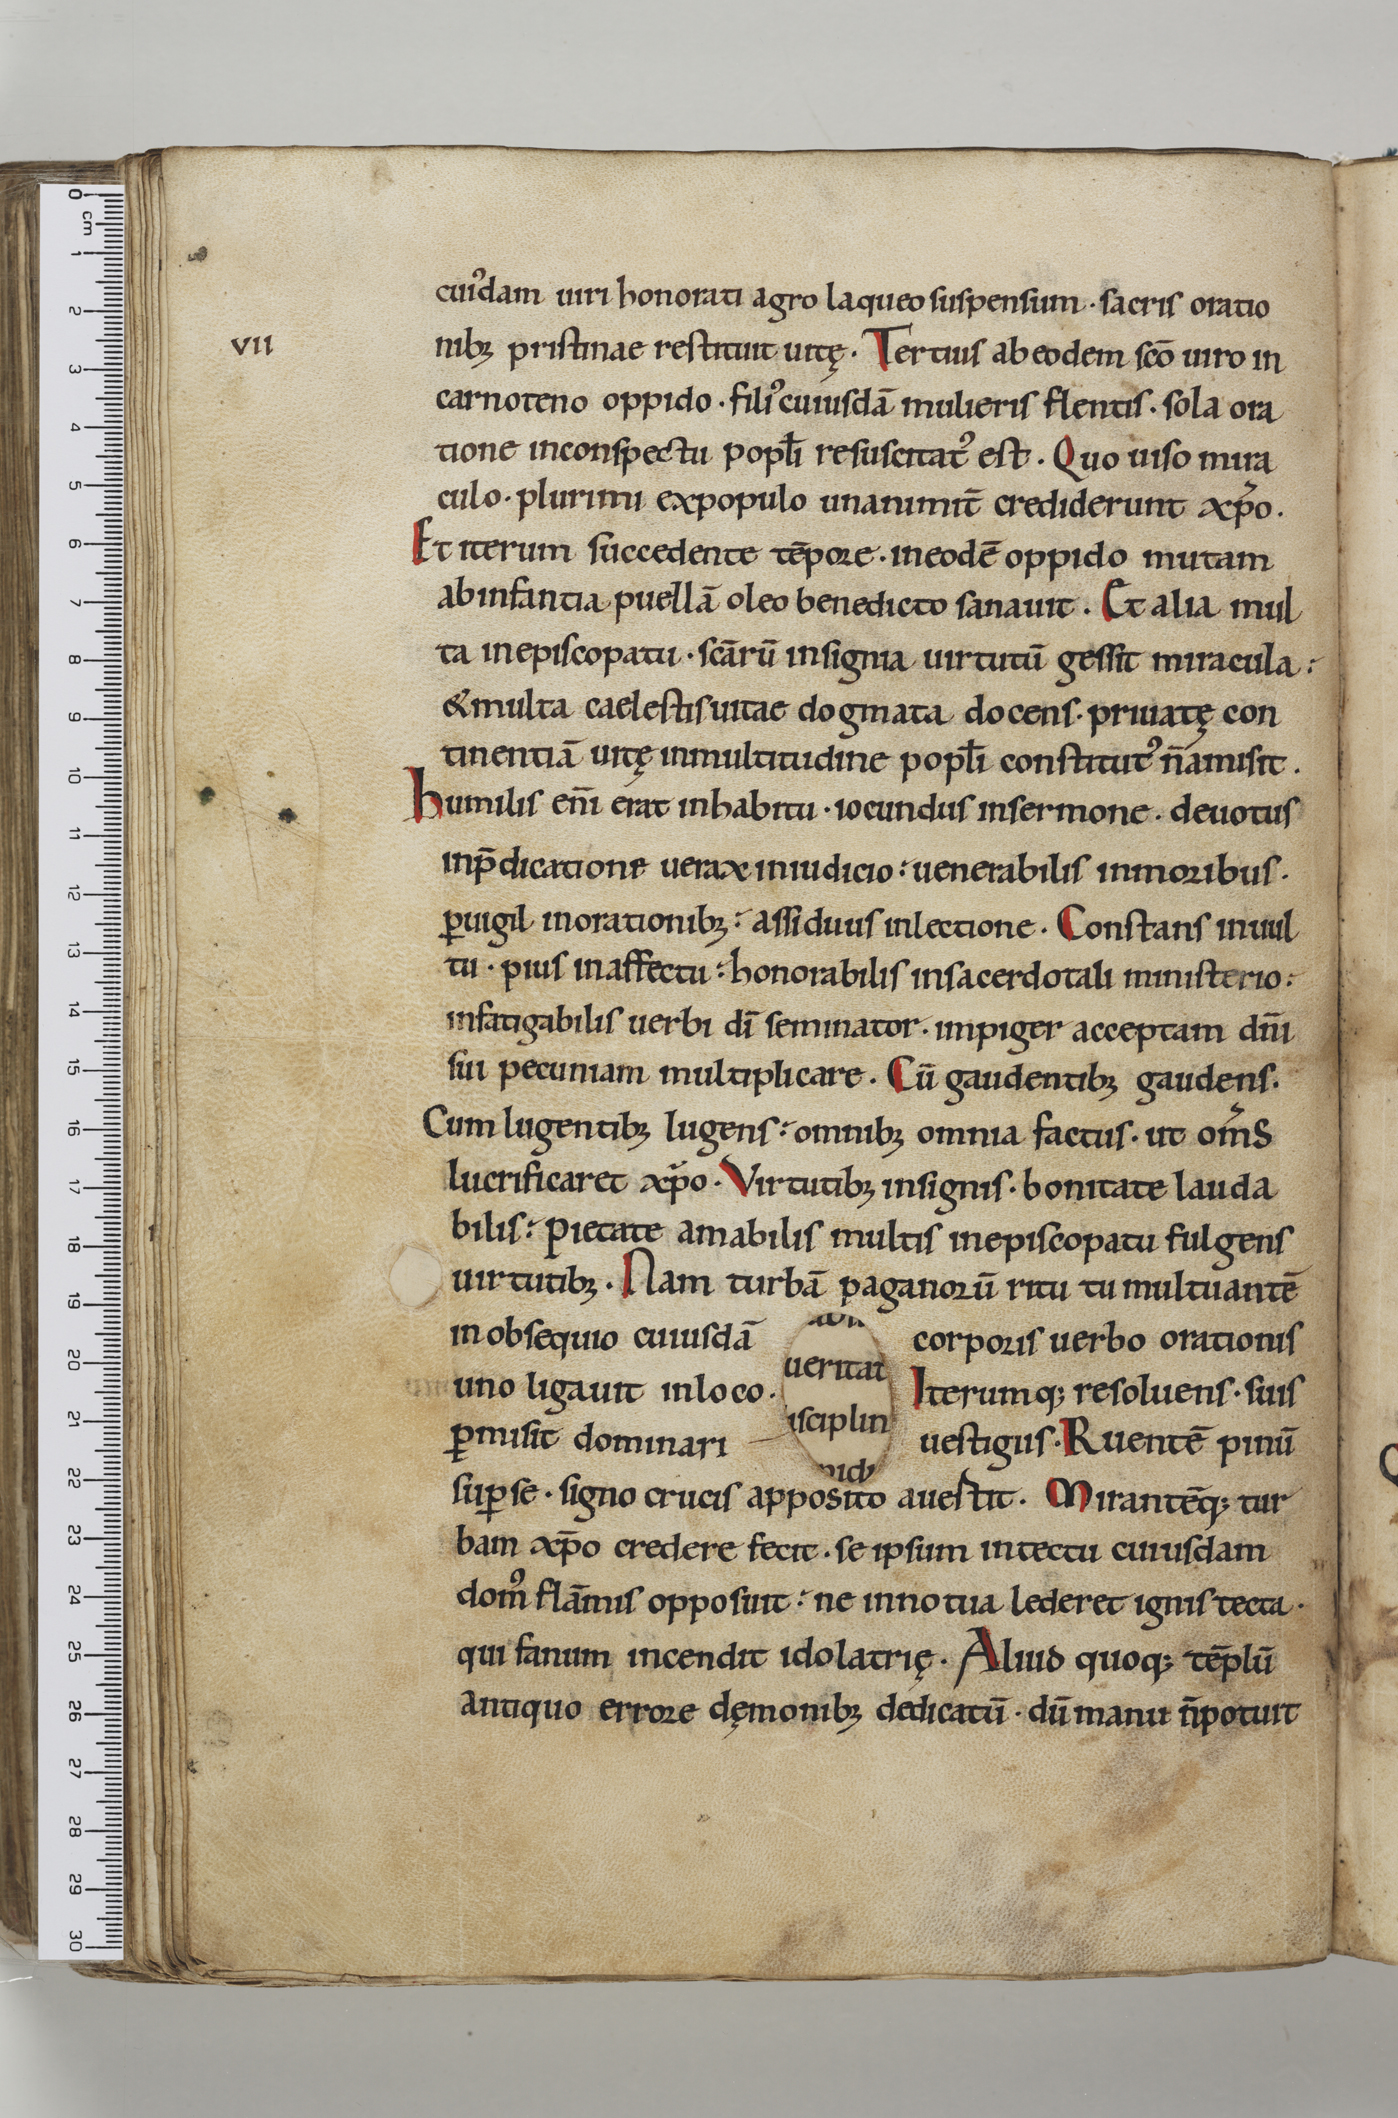 cuiꝰdam uiri honorati agro laqueo suspensum · sacris oratio
VII
nibꝫ pristinae restituit uitę. Tertius ab eodem sc̄o uiro in
carnoteno oppido · filiꝰ cuiusdā mulieris flentis · sola ora
tione inconspectu popl̄i resuscitatꝰ est. Quo uiso mira
culo · plurimi expopulo unanimit̄ crediderunt xp̄o.
Et iterum succedente tēpore · ineodē oppido mutam
abinfantia puellā oleo benedicto sanauit. Et alia mul
ta inepiscopatu · scārū insignia uirtutū gessit miracula:
&multa caelestis uitae dogmata docens · priuatę con
tinentiā uitę inmultitudine popl̄i constitutꝰ n̄amisit.
humilis eni̅ erat inhabitu · iocundus insermone · deuotus
inp̄dicatione uerax iniudicio: uenerabilis inmoribus ·
ꝑuigil inorationibꝫ: assiduus inlectione. Constans inuul
tu · pius inaffectu: honorabilis insacerdotali ministerio:
infatigabilis uerbi dī seminator · impiger acceptam dn̄i
sui pecuniam multiplicare. Cū gaudentibꝫ gaudens.
Cum lugentibꝫ lugens: omnibꝫ omnia factus · ut om̄s
lucrificaret xp̄o. Virtutibꝫ insignis · bonitate lauda
bilis: pietate amabilis multis inepiscopatu fulgens
uirtutibꝫ. Nam turbā paganorū ritu tumultuantē
inobsequio cuiusdā corporis uerbo orationis
ueritat
uno ligauit inloco. Iterumqꝫ resoluens · suis
isciplin
ꝑmisit dominari uestigiis. Ruentē pinū
suꝑse · signo crucis apposito auestit. Mirantēqꝫ tur
bam xp̄o credere fecit · se ipsum intectu cuiusdam
domꝰ flāmis opposuit: ne innotua lederet ignis tecta ·
qui fanum incendit idolatrię. Aliud quoqꝫ tēplū
antiquo errore dęmonibꝫ dedicatū · dū manu n̄potuit